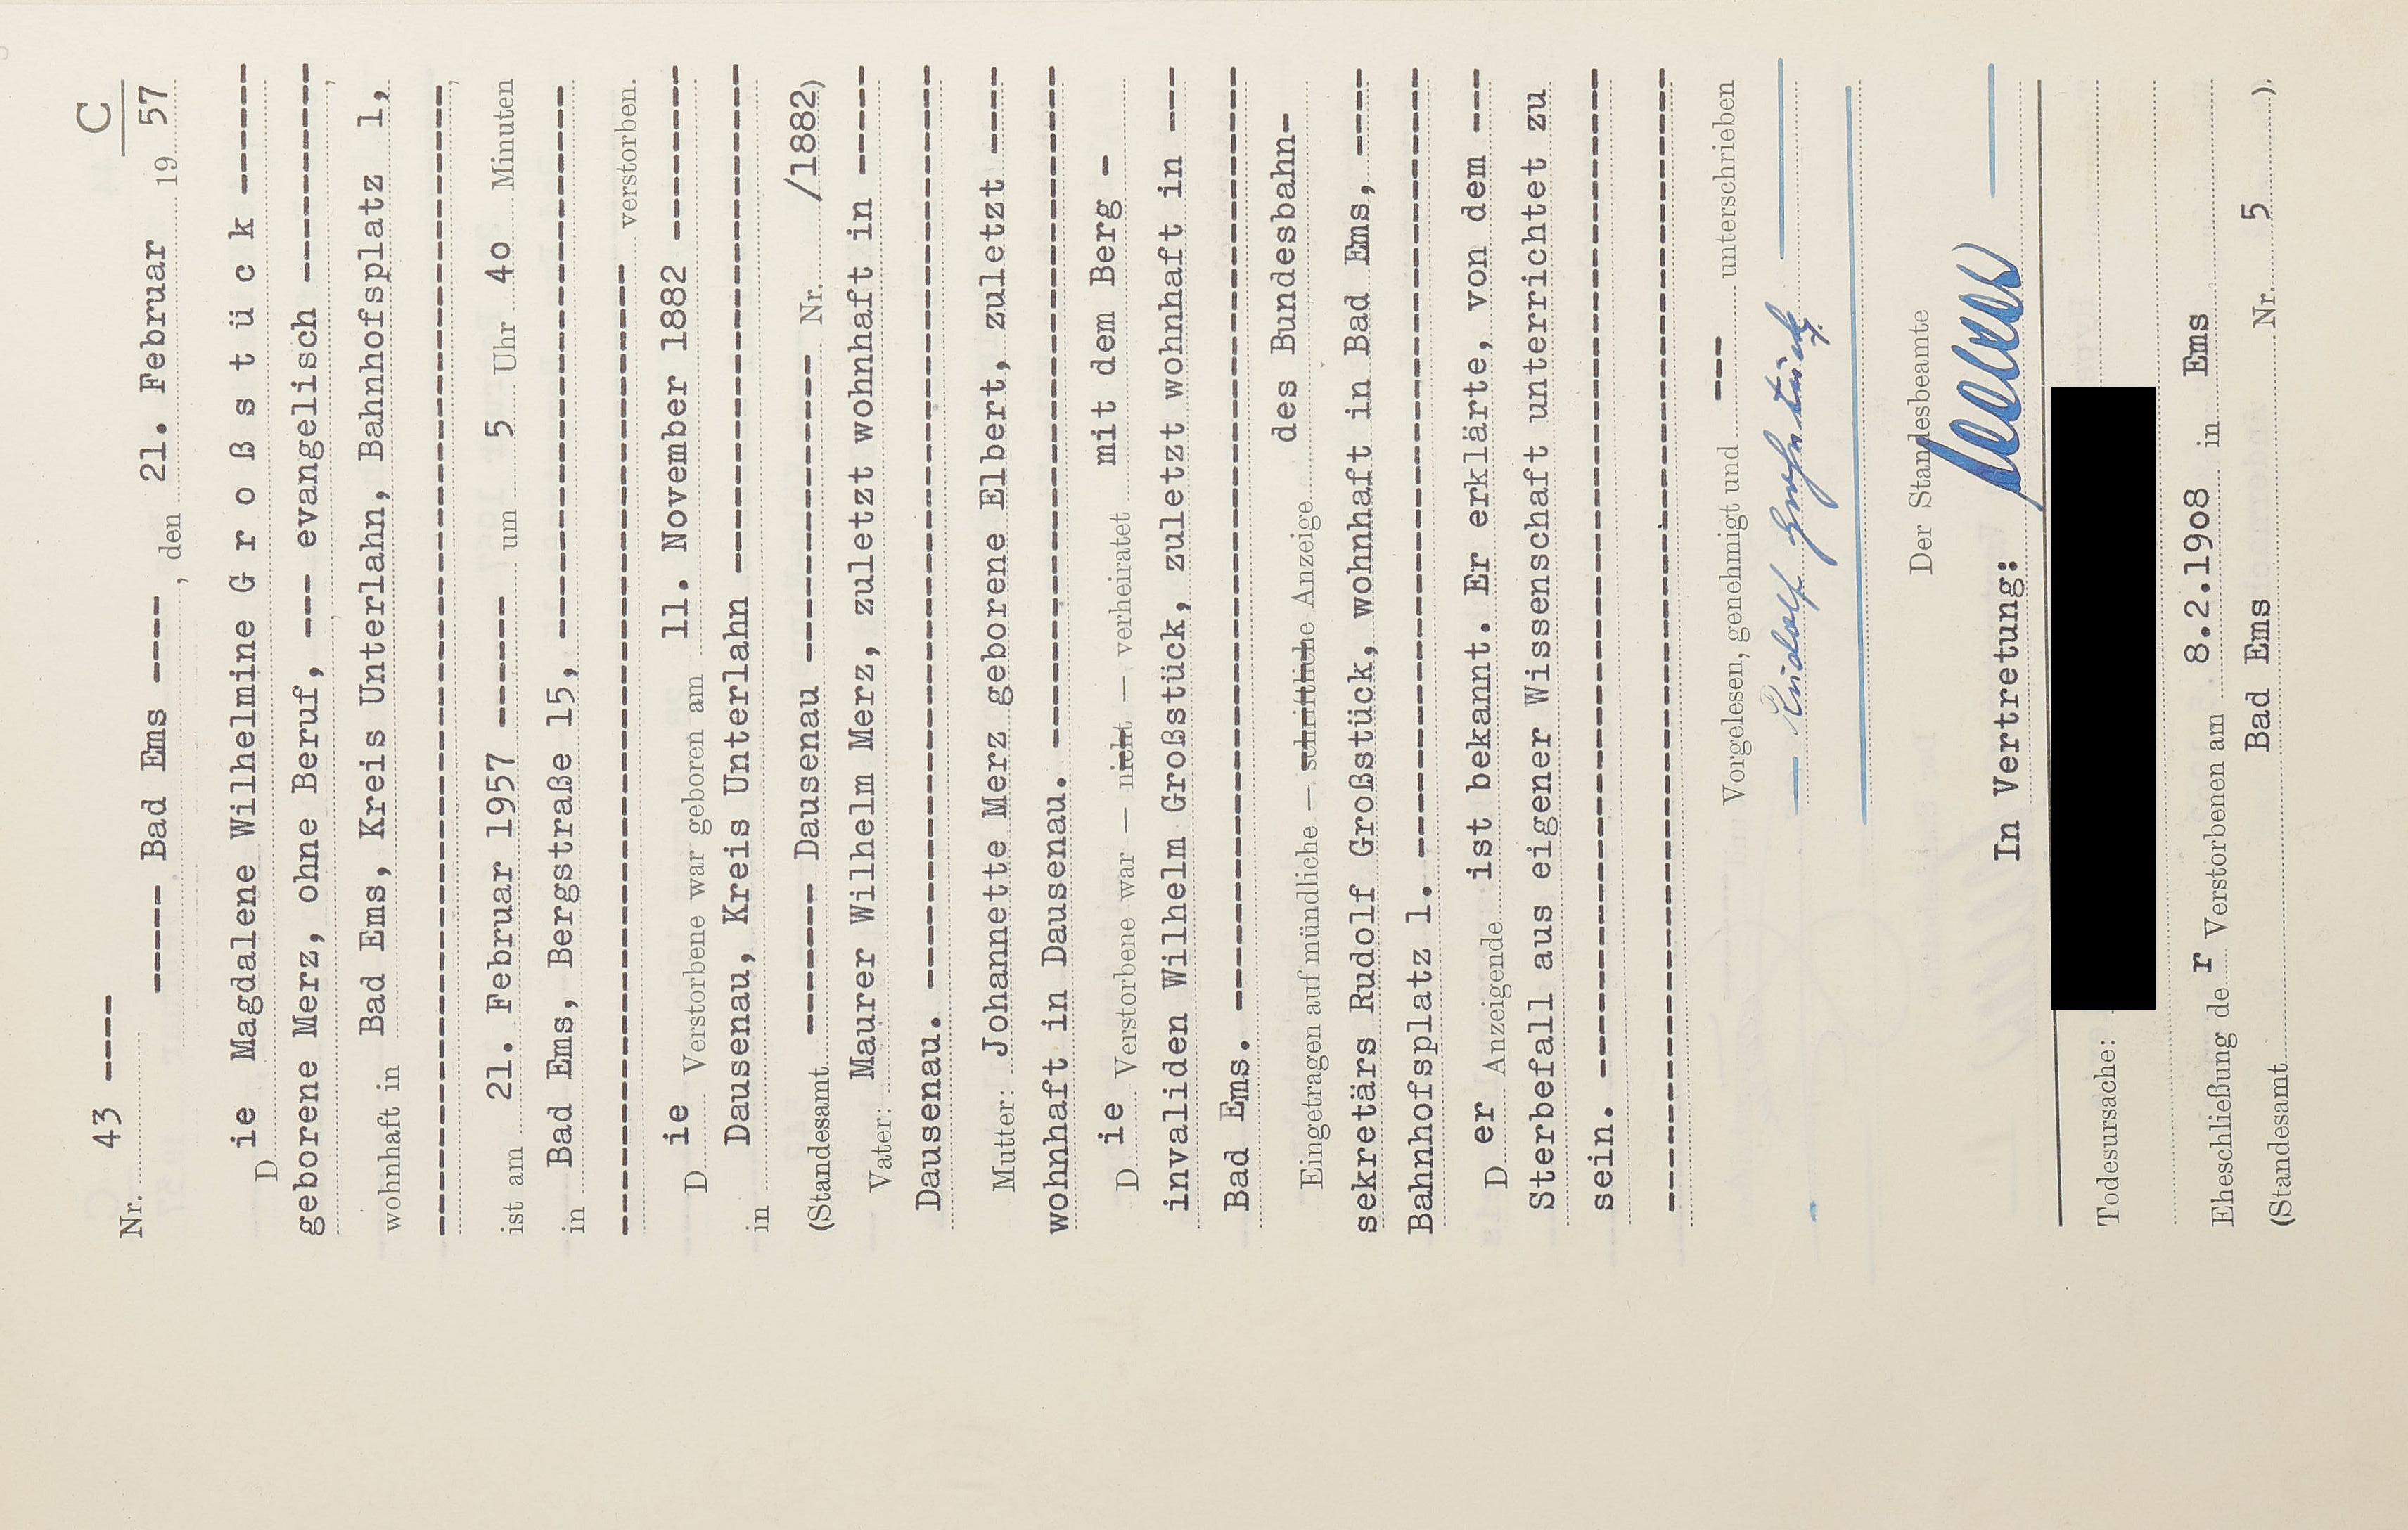 C
Nr. 43 ----
----- Bad Ems ----, den 21. Februar 19 57
Die Magdalene Wilhelmine G r o ß s t ü c k ------
geborene Merz, ohne Beruf, --- evangelisch ----------,
wohnhaft in Bad Ems, Kreis Unterlahn, Bahnhofsplatz 1,
ist am 21. Februar 1957 ------ um 5 Uhr 4o Minuten
in Bad Ems, Bergstraße 15, ----------
verstorben.
Die Verstorbene war geboren am 11. November 1882 --------
in Dausenau, Kreis Unterlahn ----------
(Standesamt ------- Dausenau ---------------- Nr. /1882)
Vater: Maurer Wilhelm Merz, zuletzt wohnhaft in -----
Dausenau. ----------
Mutter: Johannette Merz geborene Elbert, zuletzt ----
wohnhaft in Dausenau. ----------
Die Verstorbene war — nicht — verheiratet mit dem Berg -
invaliden Wilhelm Großstück, zuletzt wohnhaft in ---
Bad Ems. ----------
Eingetragen auf mündliche — schriftliche Anzeige des Bundesbahn-
sekretärs Rudolf Großstück, wohnhaft in Bad Ems, ----
Bahnhofsplatz 1. ----------
Der Anzeigende ist bekannt. Er erklärte, von dem ---
Sterbefall aus eigener Wissenschaft unterrichtet zu
sein. ----------
Vorgelesen, genehmigt und --- unterschrieben
Rudolf Großstück
Der Standesbeamte
In Vertretung:
Todesursache:
Eheschließung der Verstorbenen am 8.2.19o8 in Ems
(Standesamt Bad Ems Nr. 5 ).